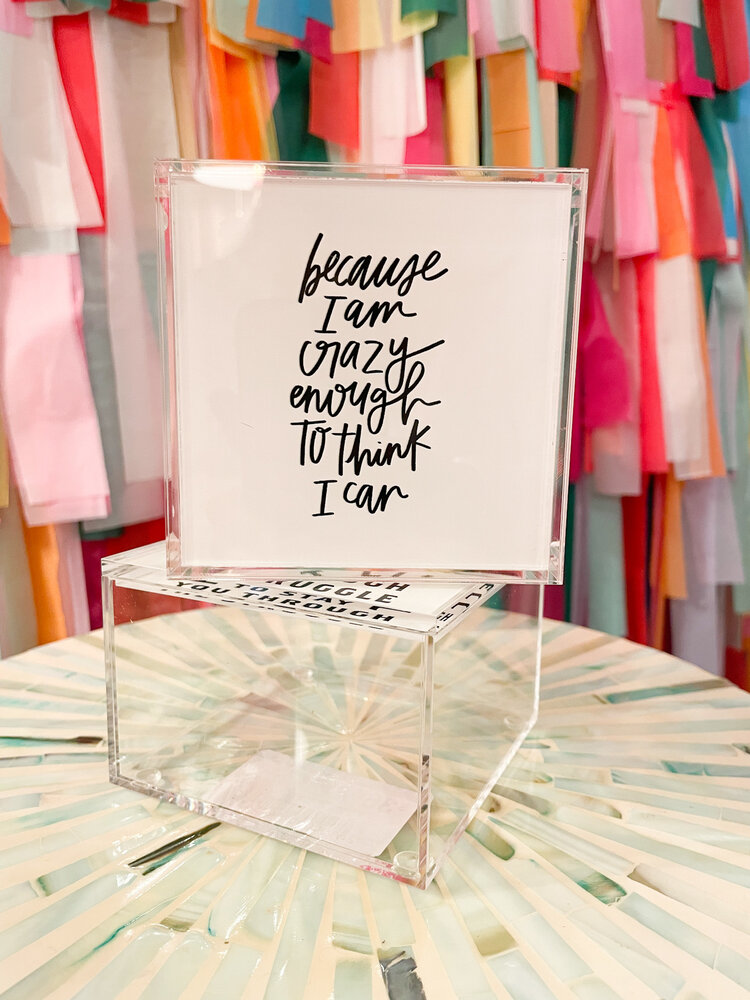 because
I am
crazy
enough
To think
I can
RUGGLE
TO STAY
YOU THROUGH